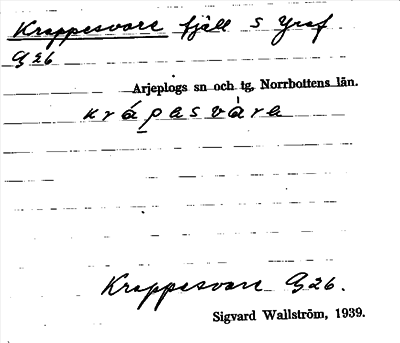 Krappesvare fjäll S Graf
G26
Arjeplogs sn och tg, Norrbottens län.
krápasvàre
Krappesvare G26.
Sigvard Wallström, 1939.